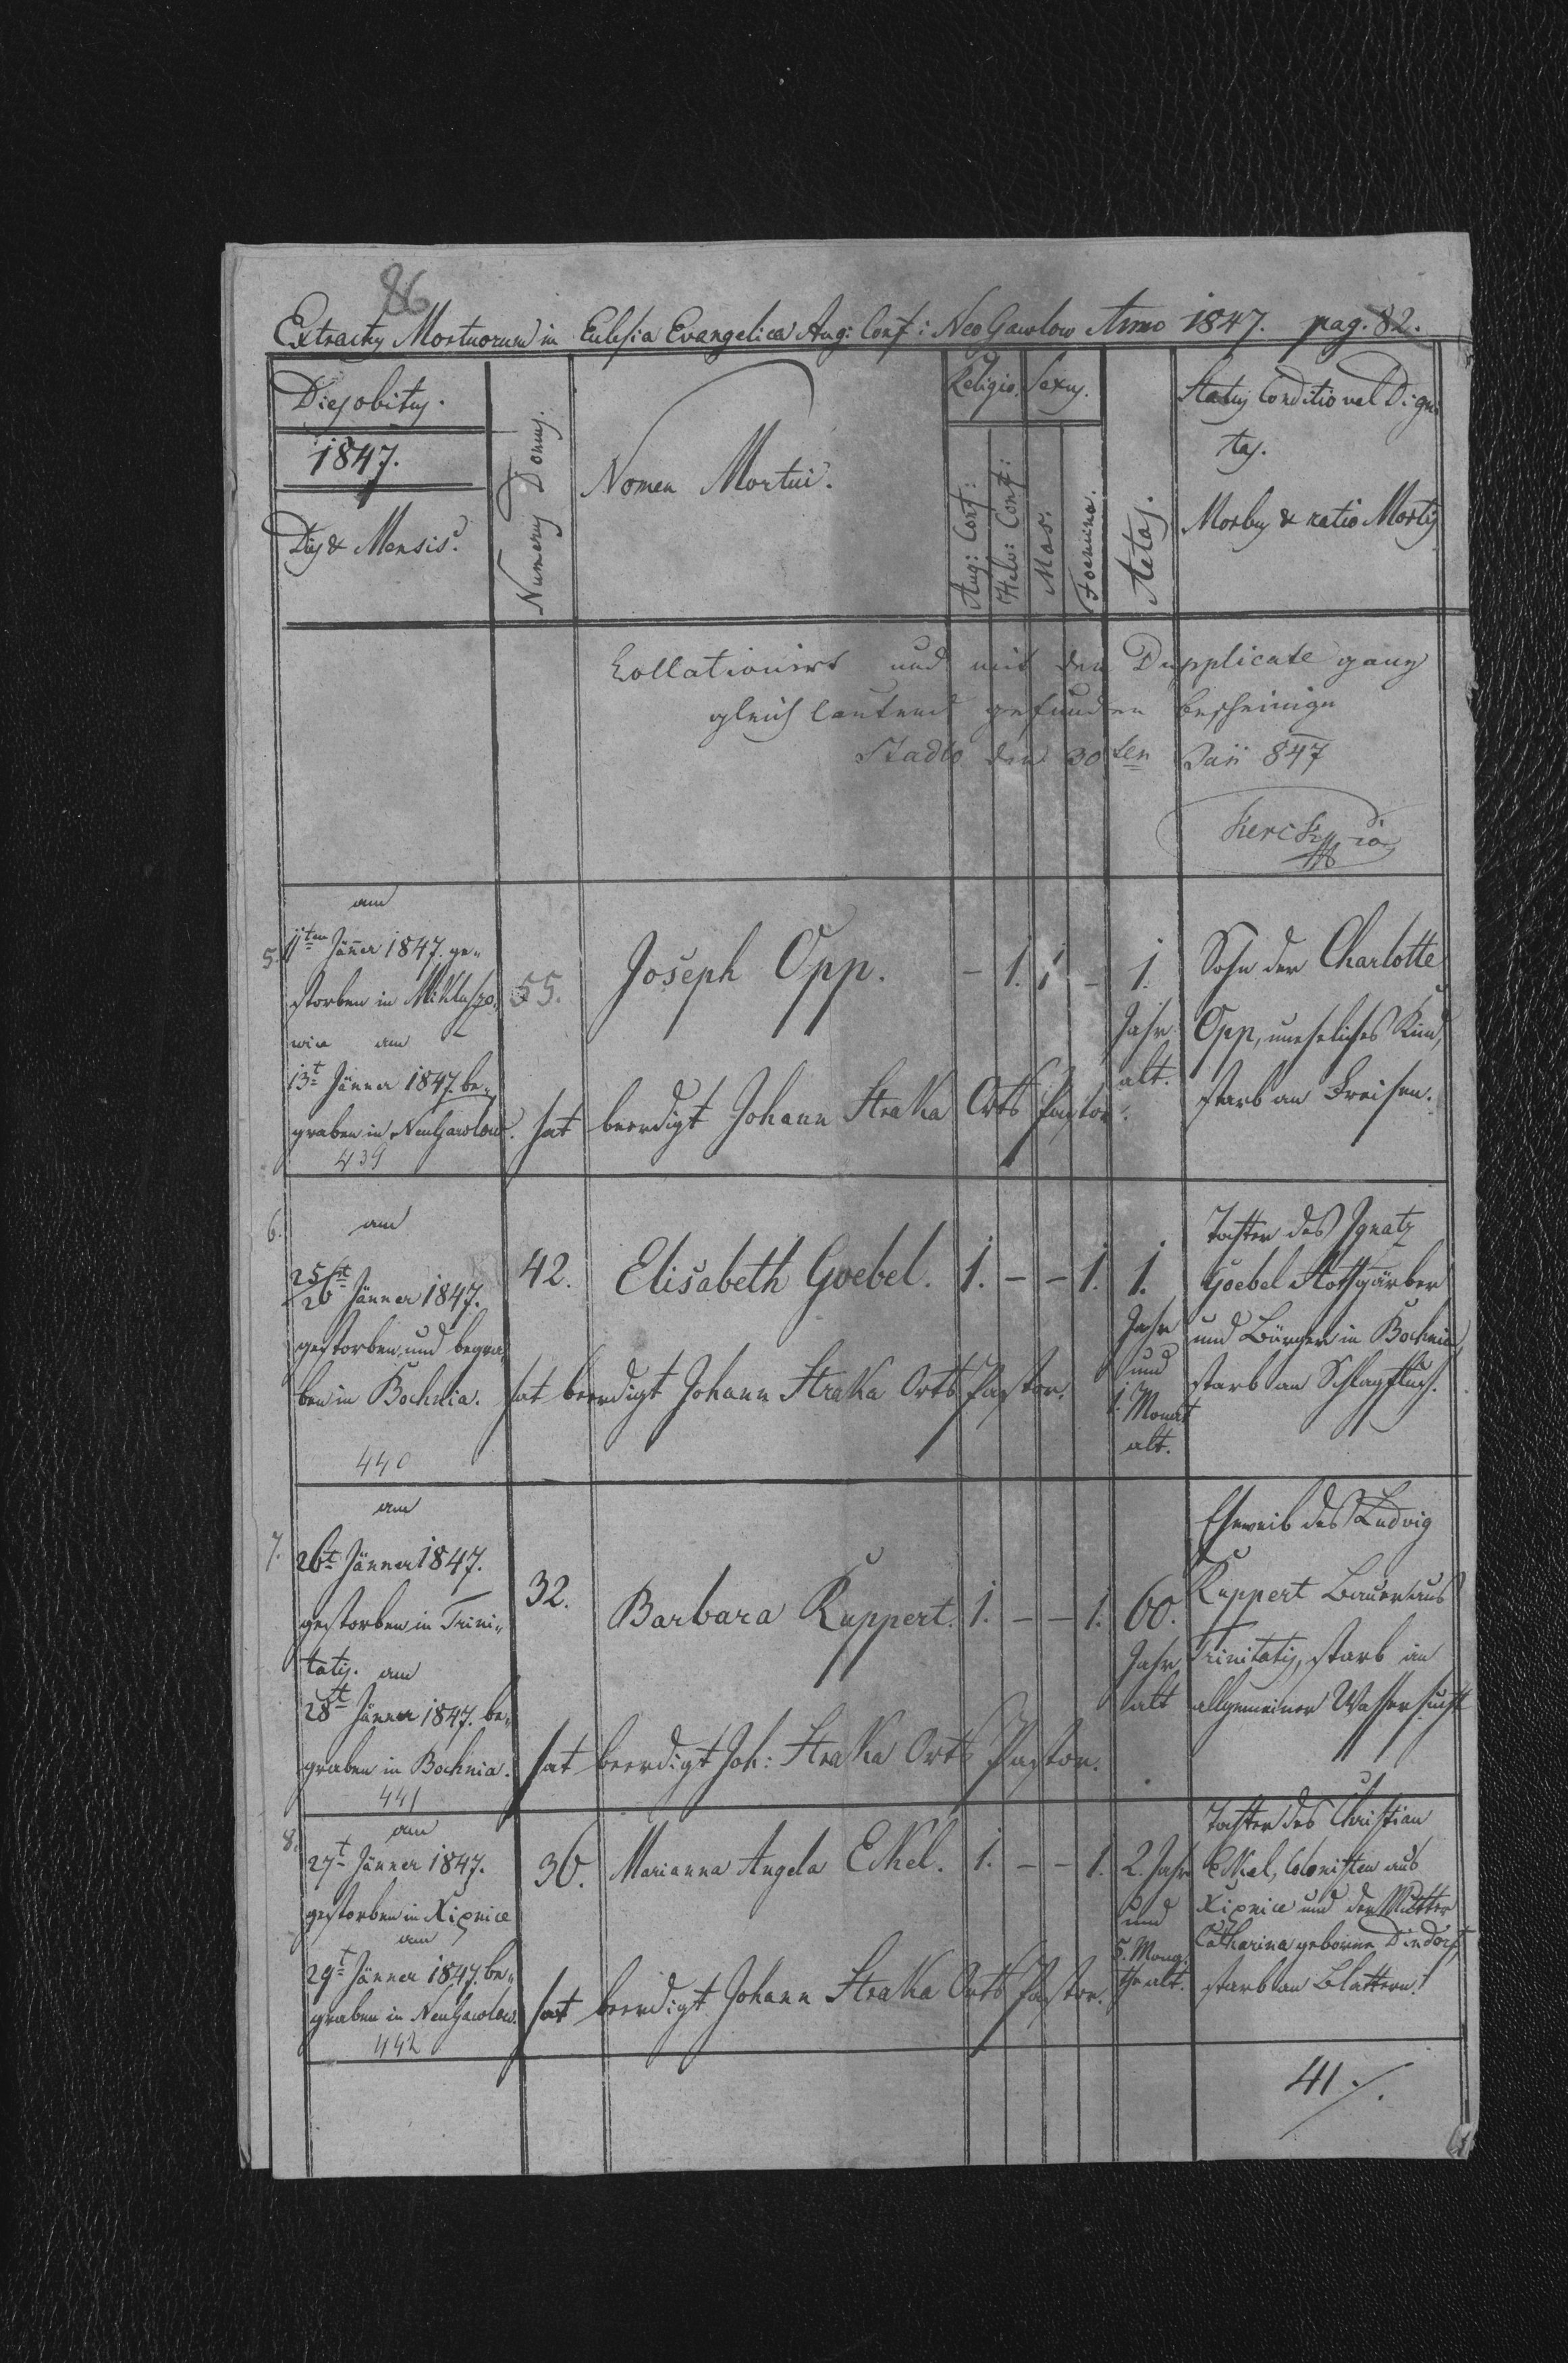 86
Extractus Mortuorum in Eclesia Evangelica Aug: Conf: Neo Gawlow Anno 1847. pag. 82.
Dies obitus.
1847.
Dies & Mensis.
Numerus Domus.
Nomen Mortui.
Religio.
Aug: Conf:
Helv: Conf:
Sexus.
Mas.
Foemina.
Aetas.
Status Conditio vel Digni
tas.
Morbus & ratio Mortis
Collationirt und mit dem Dupplicate ganz
gleich lautend gefunden bescheinige
den 30ten 847
am
5. 11ten Jänner 1847. ge-
storben in Mikluszo-
wice am
13t Jänner 1847. be-
graben in NeuGawlow.
439
55.
Joseph Opp. - 1. 1 -
1.
Jahr
alt.
Sohn der Charlotte
Opp, uneheliches Kind,
starb an Freisen.
hat beerdigt Johann Straka Orts Pastor.
6.
am
25/26st Jänner 1847.
gestorben und begra-
ben in Bochnia.
440
42.
Elisabeth Goebel. 1. - - 1.
1.
Jahr
und
1. Monat
alt.
Tochter des Ignatz
Goebel Rothgärber
und Bürger in Bochnia,
starb an Schlagfluß.
hat beerdigt Johann Straka Orts Pastor.
am
7. 26t Jänner 1847.
gestorben in Trini-
tatis. am
28t Jänner 1847. be-
graben in Bochnia.
441
32.
Barbara Ruppert. 1. - - 1.
60.
Jahr
alt
Eheweib des Ludwig
Ruppert Bauer aus
Trinitatis, starb an
allgemeiner Wassersucht
hat beerdigt Joh: Straka Orts Pastor.
8.
am
27t Jänner 1847.
gestorben in Xiąnice
am
29t Jänner 1847. be-
graben in NeuGawlow.
442
36.
Marianna Angela Ekel. 1. - - 1.
2. Jahr
und
5. Mona-
the alt.
Tochter des Christian
Ekel, Colonisten aus
Xiąnice und der Mutter
Catharina geborne Dindorf,
starb an Blattern.
hat beerdigt Johann Straka Orts Pastor.
41 ./.